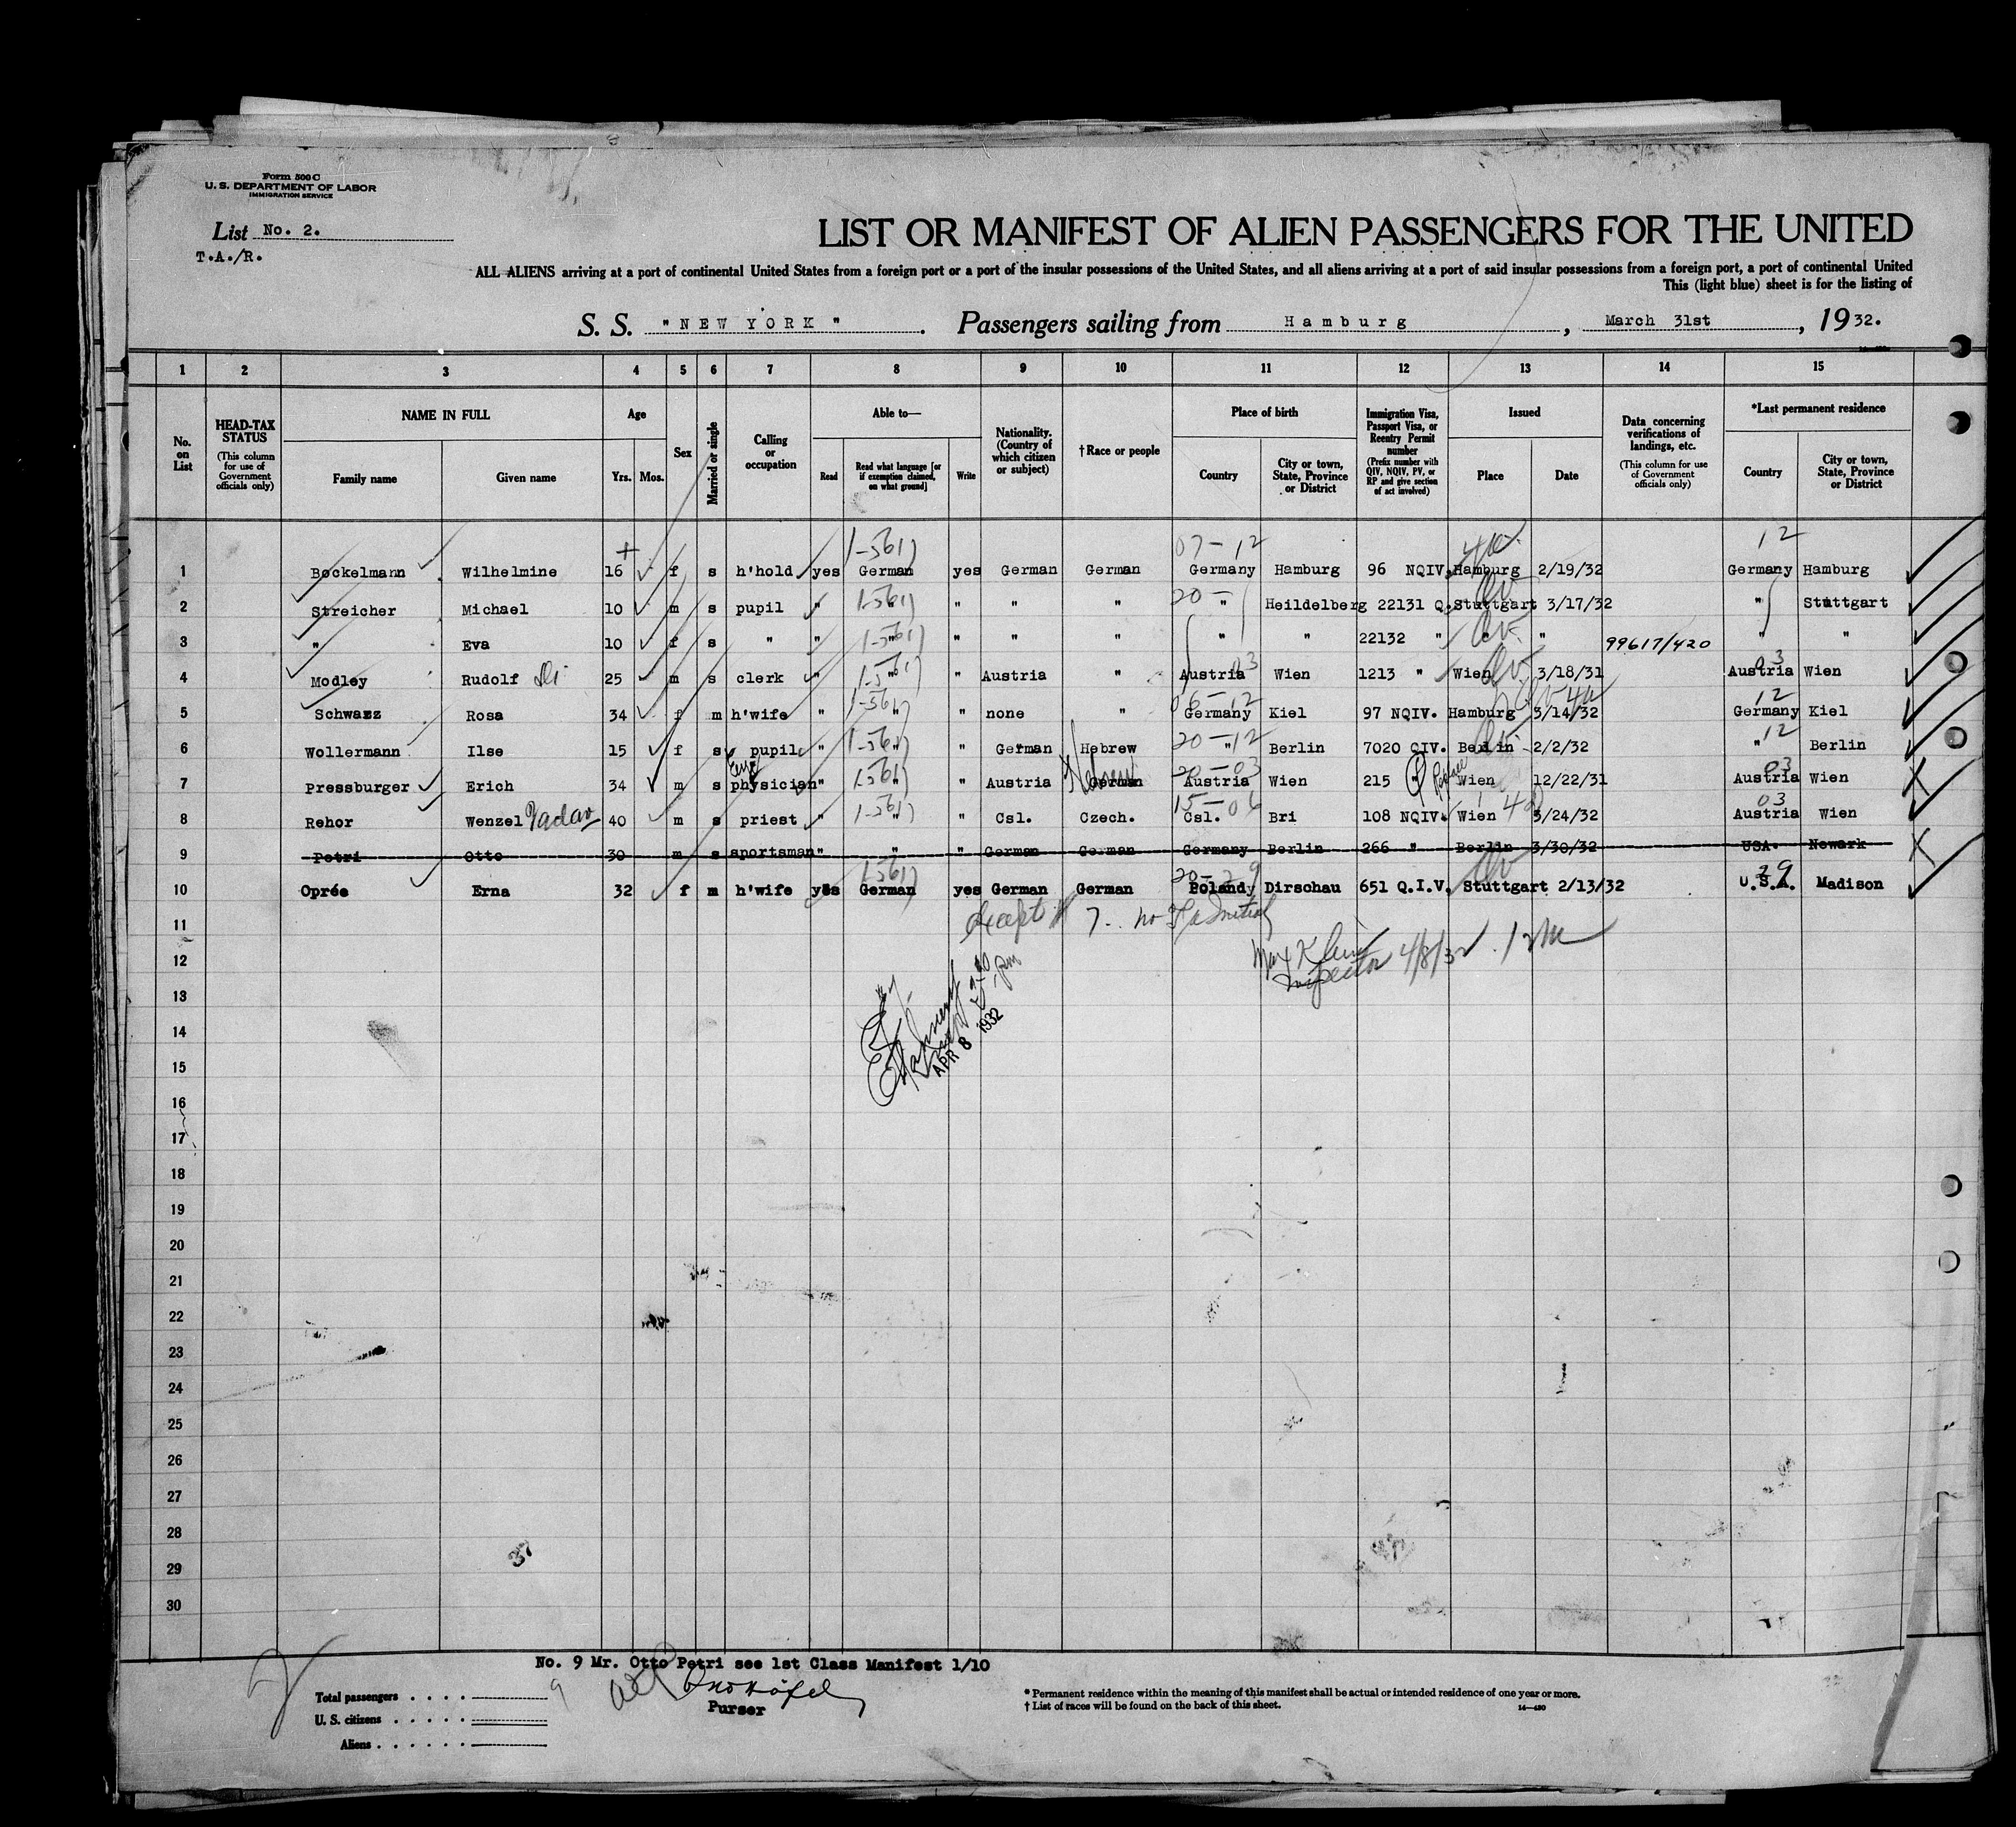 Form 500 C
U. S. DEPARTMENT OF LABOR
IMMIGRATION SERVICE
List No. 2.
T.A./R.
LIST OR MANIFEST OF ALIEN PASSENGERS FOR THE UNITED
ALL ALIENS arriving at a port of continental United States from a foreign port or a port of the insular possessions of the United States, and all aliens arriving at a port of said insular possessions from a foreign port, a port of continental United
This (light blue) sheet is for the listing of
S. S. "NEW YORK". Passengers sailing from Hamburg, March 31st, 1932.
1 2 3 4 5 6 7 8 9 10 11 12 13 14 15
No. on List
HEAD-TAX STATUS (This column for use of Government officials only)
NAME IN FULL Family name Given name
Age Yrs. Mos.
Sex
Married or single
Calling or occupation
Able to— Read Read what language [or if exemption claimed, on what ground] Write
Nationality. (Country of which citizen or subject)
†Race or people
Place of birth Country City or town, State, Province or District
Immigration Visa, Passport Visa, or Reentry Permit number (Prefix number with QIV, NQIV, PV, or RP and give section of act involved)
Issued Place Date
Data concerning verifications of landings, etc. (This column for use of Government officials only)
*Last permanent residence Country City or town, State, Province or District
07-12 12
1 Bockelmann Wilhelmine 16 f s h'hold yes German yes German German Germany Hamburg 96 NQIV. Hamburg 2/19/32 Germany Hamburg
2 Streicher Michael 10 m s pupil " " " " " " Heildelberg 22131 Q. Stuttgart 3/17/32 " Stuttgart
3 " Eva 10 f s " " " " " " " " 22132 " " " 99617/420 " "
4 Modley Rudolf 25 m s clerk " " " Austria " Austria Wien 1213 " Wien 3/18/31 Austria Wien
5 Schwazz Rosa 34 f m h'wife " " " none " Germany Kiel 97 NQIV. Hamburg 3/14/32 Germany Kiel
6 Wollermann Ilse 15 f s pupil " " " German Hebrew " Berlin 7020 QIV. Berlin 2/2/32 " Berlin
7 Pressburger Erich 34 m s physician " " " Austria German Hebrew Austria Wien 215 " Wien 12/22/31 Austria Wien
8 Rehor Wenzel 40 m s priest " " " Csl. Czech. Csl. Bri 108 NQIV. Wien 3/24/32 Austria Wien
9 Petri Otto 30 m s sportsman " " " German German Germany Berlin 266 " Berlin 3/30/32 USA. Newark
10 Oprée Erna 32 f m h'wife yes German yes German German Poland Dirschau 651 Q.I.V. Stuttgart 2/13/32 U.S.A. Madison
11
12 Inspector 4/8/32
13
14
15 APR 8 1932
16
17
18
19
20
21
22
23
24
25
26
27
28
29
30
37
No. 9 Mr. Otto Petri see 1st Class Manifest 1/10
Purser
Total passengers . . . .
U. S. citizens . . . . .
Aliens . . . . . .
* Permanent residence within the meaning of this manifest shall be actual or intended residence of one year or more.
† List of races will be found on the back of this sheet.
14—430